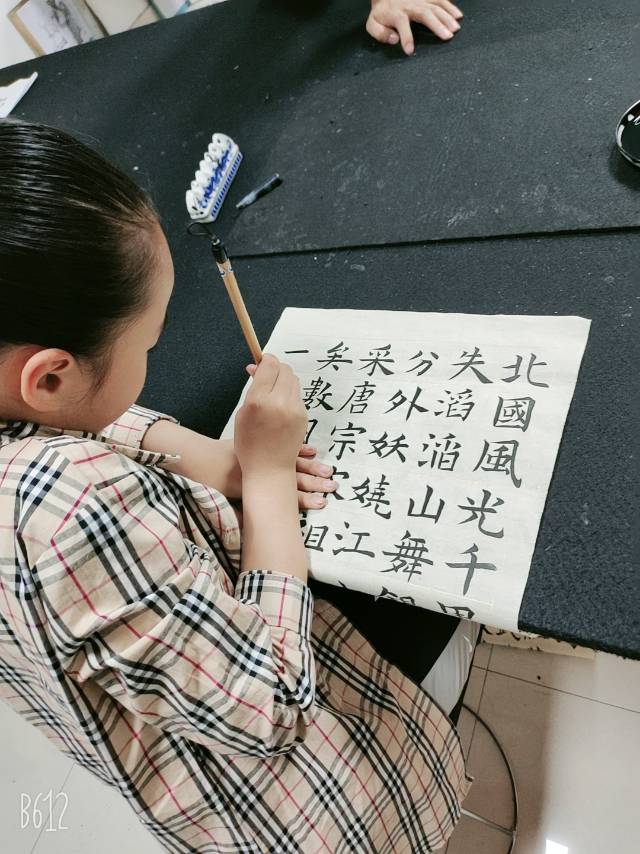 北國風光千里
失滔滔山舞銀
分外妖嬈江
采唐宗
矣數
一
B612